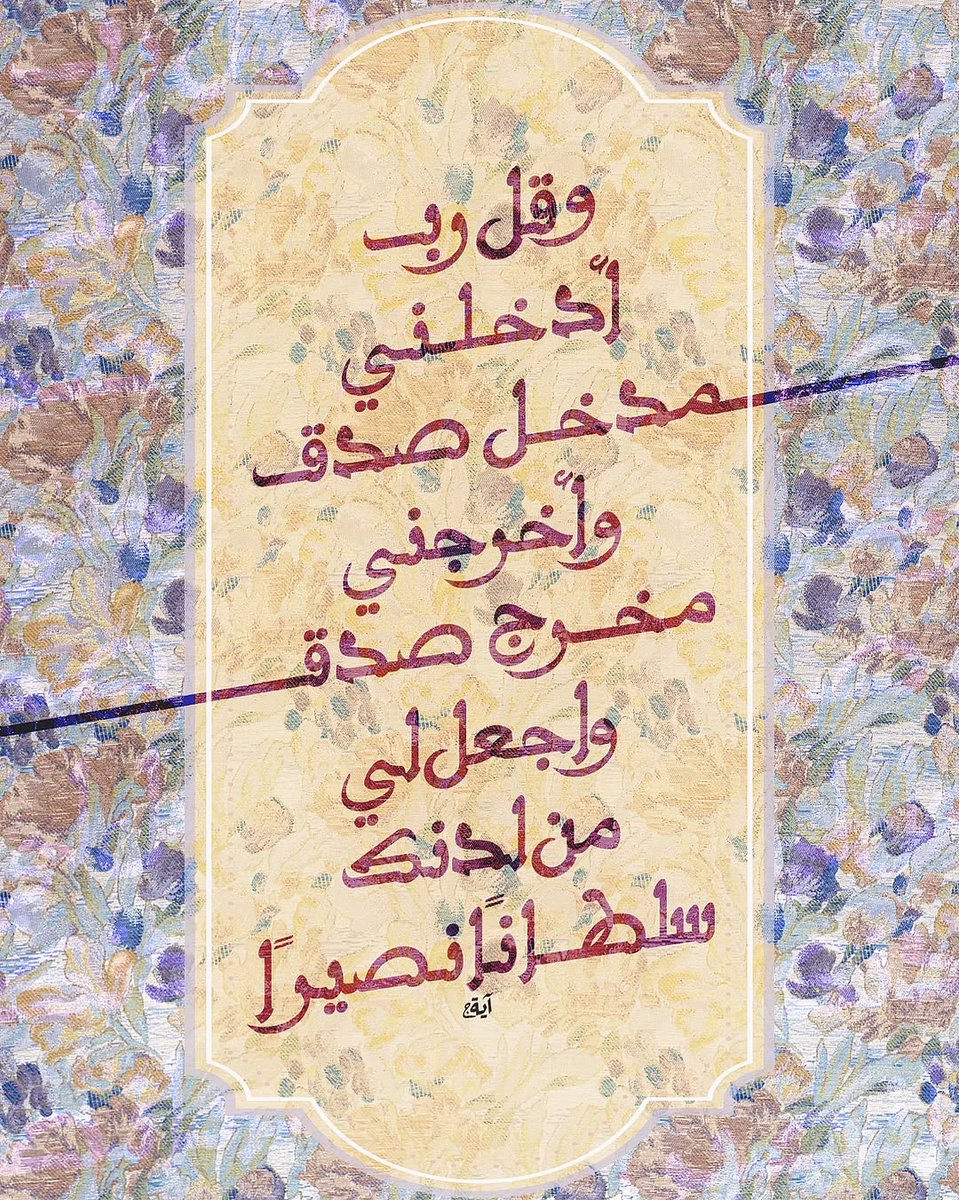 وقل رب
أدخلني
مدخل صدق
وأخرجني
مخرج صدق
واجعل لي
من لدنك
سلطانًا نصيرًا
آية